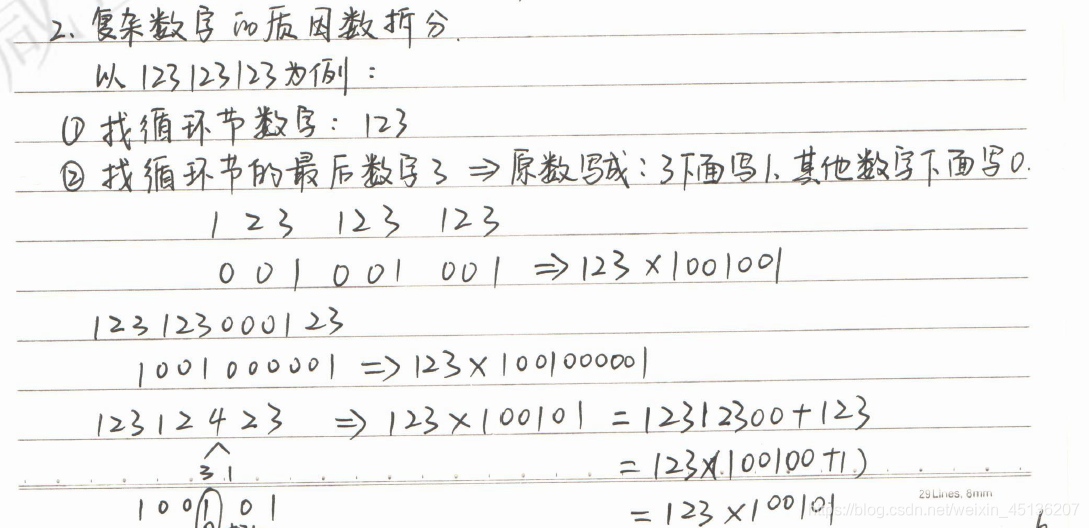 2、复杂数字的质因数拆分.
以 123123123 为例：
① 找循环节数字：123
② 找循环节的最后数字3 ⇒ 原数写成：3下面写1、其他数字下面写0.
1 2 3 1 2 3 1 2 3
0 0 1 0 0 1 0 0 1 ⇒ 123 × 1001001
123123000123
1001000001 ⇒ 123 × 1001000001
12312423 ⇒ 123 × 100101 = 12312300 + 123
3 1
= 123 × (100100 + 1)
29 Lines, 8mm
1 0 0 1 0 1
= 123 × 100101
https://blog.csdn.net/weixin_45136207